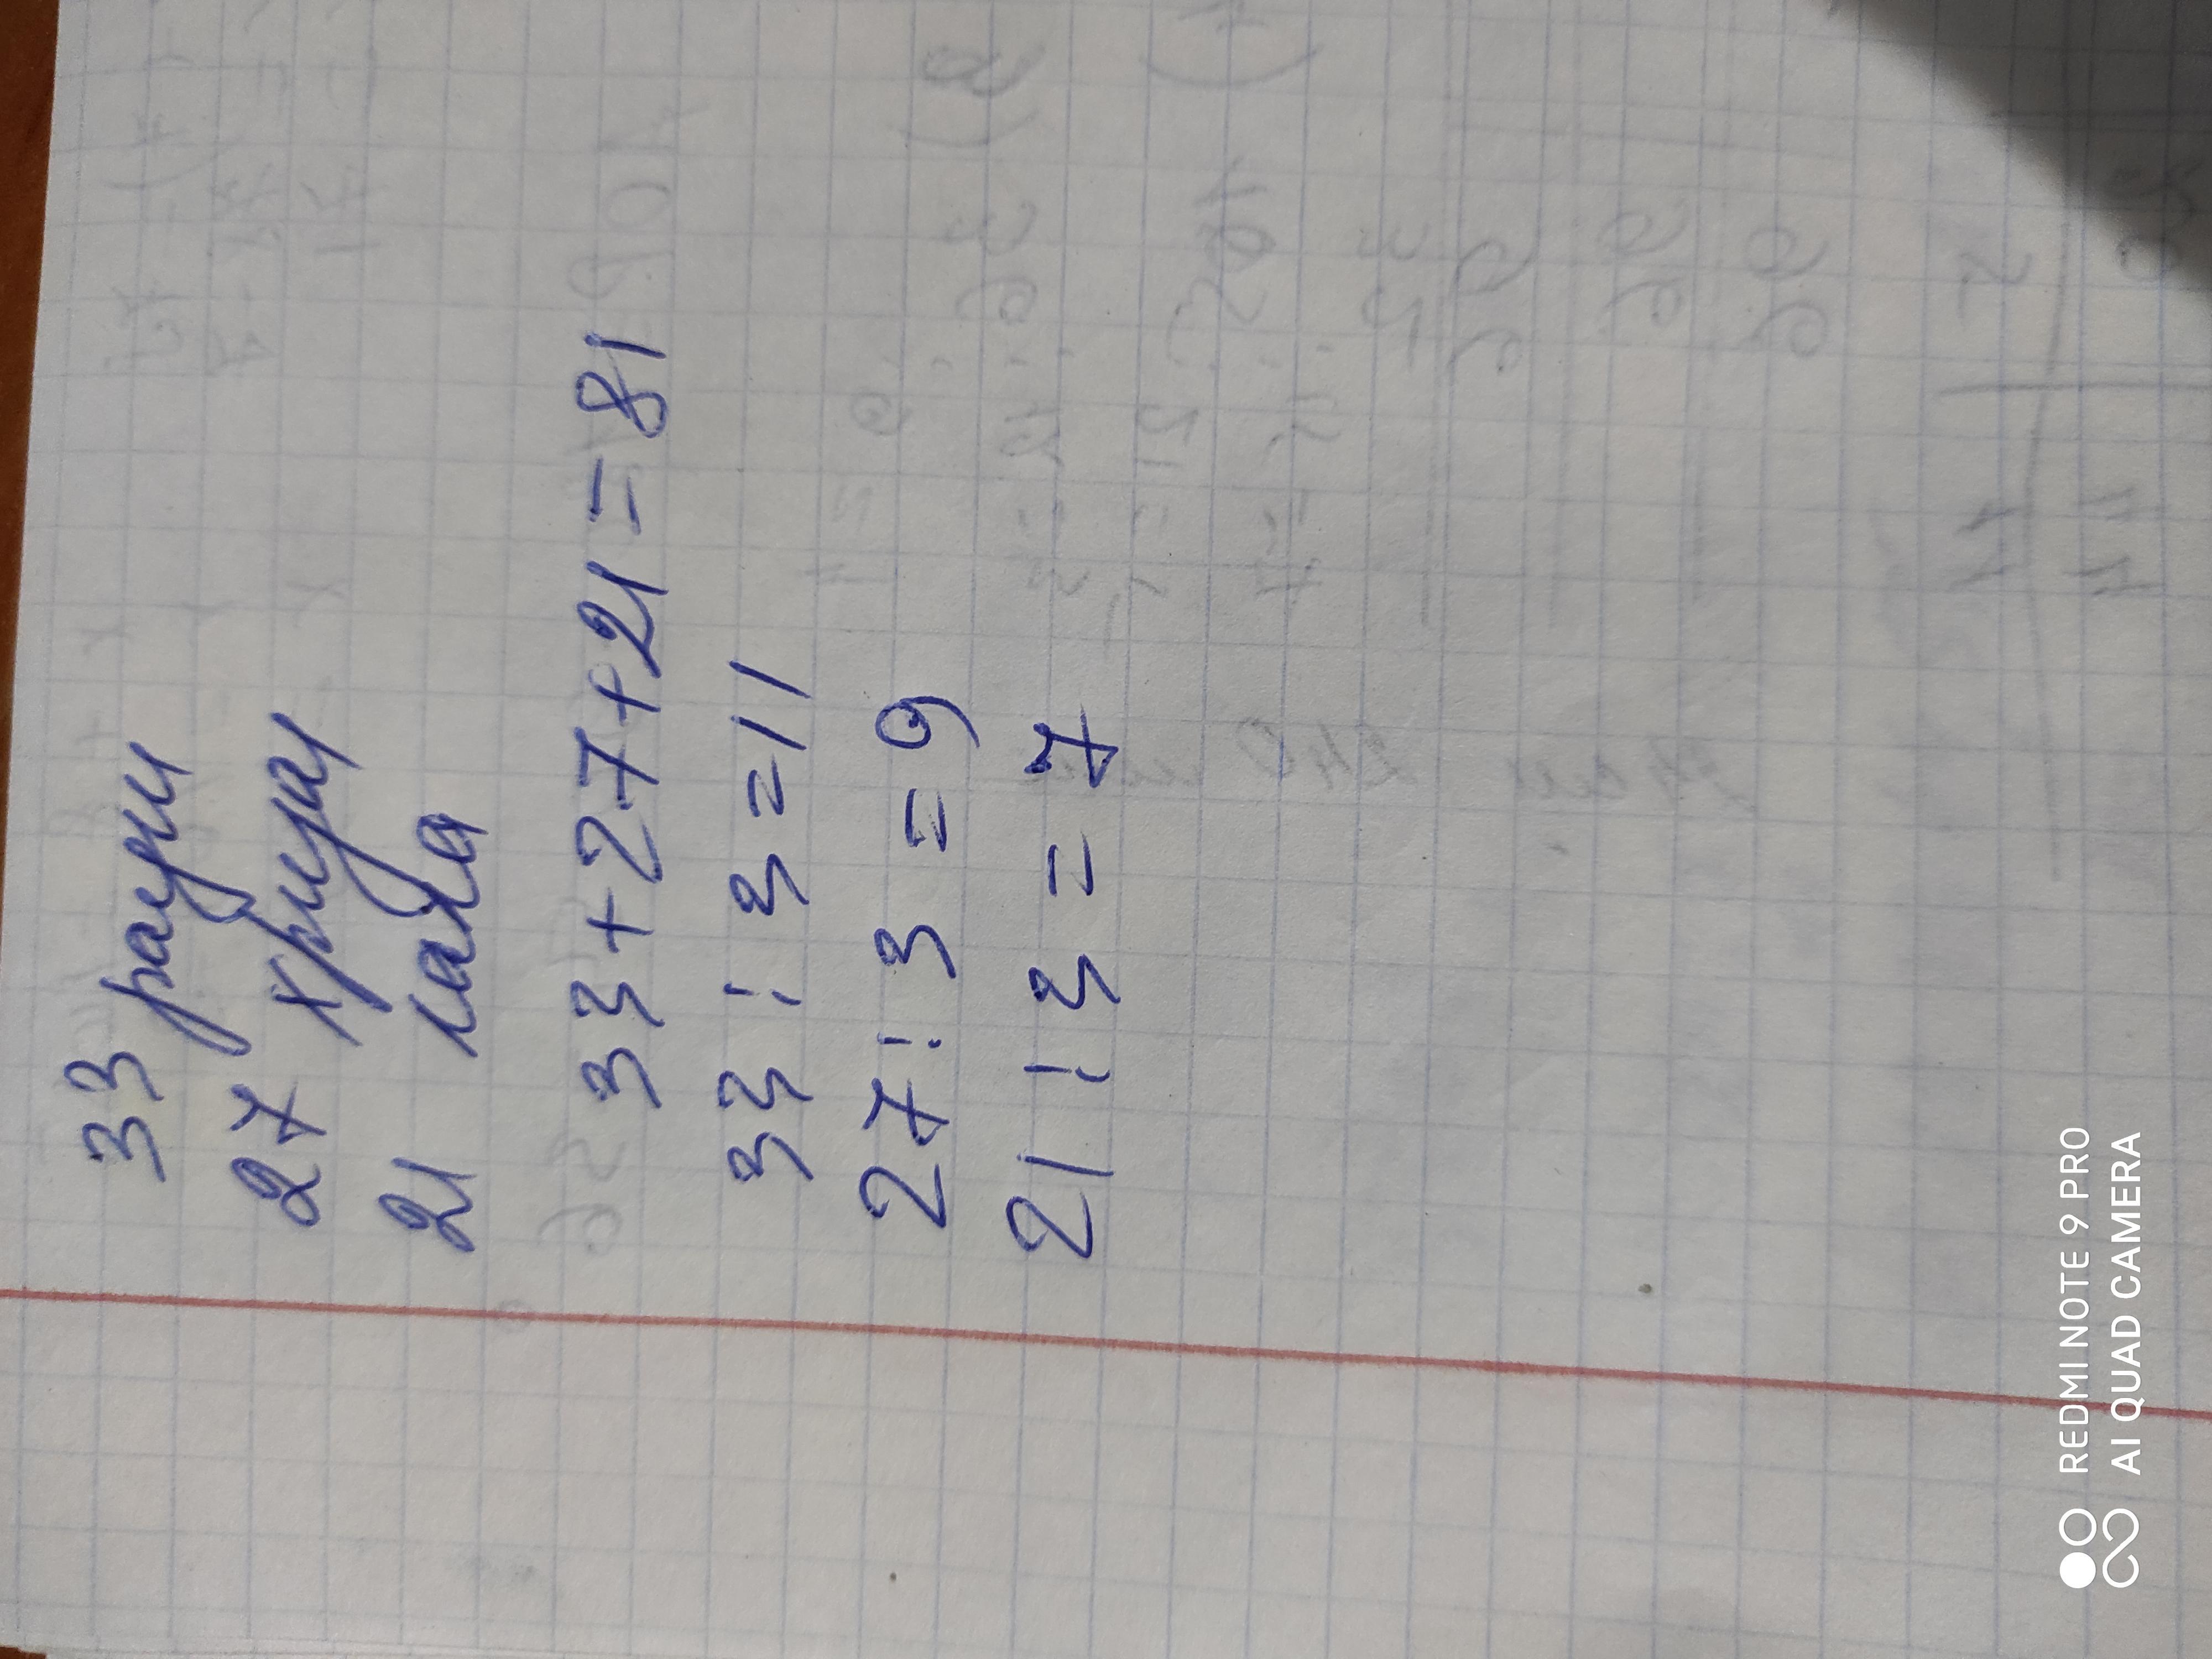 33 рази
27 хризи
21 лала
33+27+21=81
33:3=11
27:3=9
21:3=7
REDMI NOTE 9 PRO
AI QUAD CAMERA